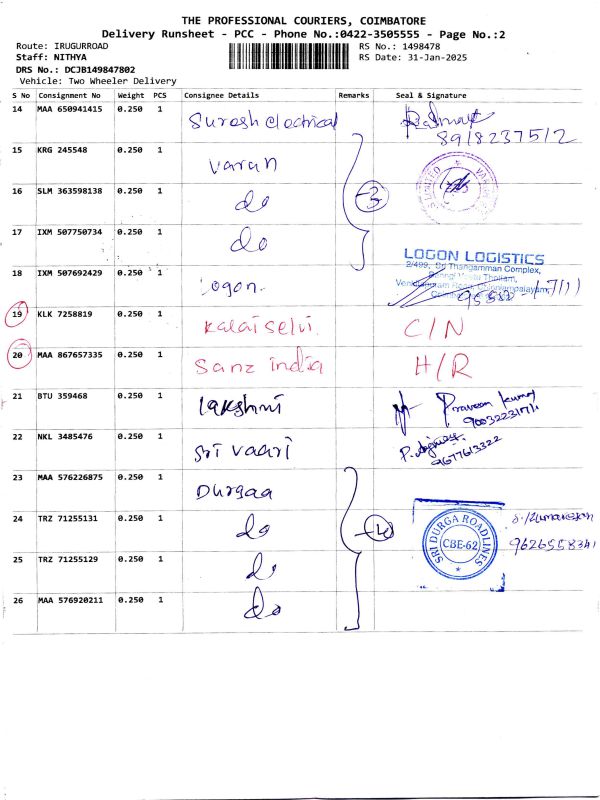 THE PROFESSIONAL COURIERS, COIMBATORE
Delivery Runsheet - PCC - Phone No.:0422-3505555 - Page No.:2
Route: IRUGURROAD
RS No.: 1498478
Staff: NITHYA
RS Date: 31-Jan-2025
DRS No.: DCJB149847802
Vehicle: Two Wheeler Delivery
S No Consignment No Weight PCS Consignee Details Remarks Seal & Signature
14 MAA 650941415 0.250 1 Suresh electrical
8918237512
15 KRG 245548 0.250 1 varan
16 SLM 363598138 0.250 1 do -3
17 IXM 507750734 0.250 1 do
LOGON LOGISTICS
2/499, Sri Thangamman Complex,
18 IXM 507692429 0.250 1 logon
19 KLK 7258819 0.250 1 kalaiselvi C/N
20 MAA 867657335 0.250 1 Sanz india H/R
21 BTU 359468 0.250 1 lakshmi Praveen kumar
22 NKL 3485476 0.250 1 Sri vaari
9677613322
23 MAA 576226875 0.250 1 Durgaa
24 TRZ 71255131 0.250 1 do -4 SRI DURGA ROADLINES CBE-62
9626558341
25 TRZ 71255129 0.250 1 do
26 MAA 576920211 0.250 1 do